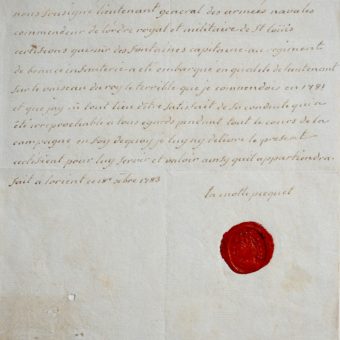 nous soussigné lieutenant général des armées navales
commendeur de lordre royal et militaire de St Louis
certifions que mr des fontaines capitaine au regiment
de beauce infanterie a été embarqué en qualité de lieutenant
sur le vaisseau du roy le terrible que je commandois en 1781
et que jay eü tout lieu d'être satisfait de sa conduite qui a
été irreprochable a tous egards pendant tout le cours de la
campagne en foy de quoy je luy ay delivré le present
certificat pour luy servir et valoir ainsy qu'il appartiendra
fait a lorient ce 1783
la motte picquet